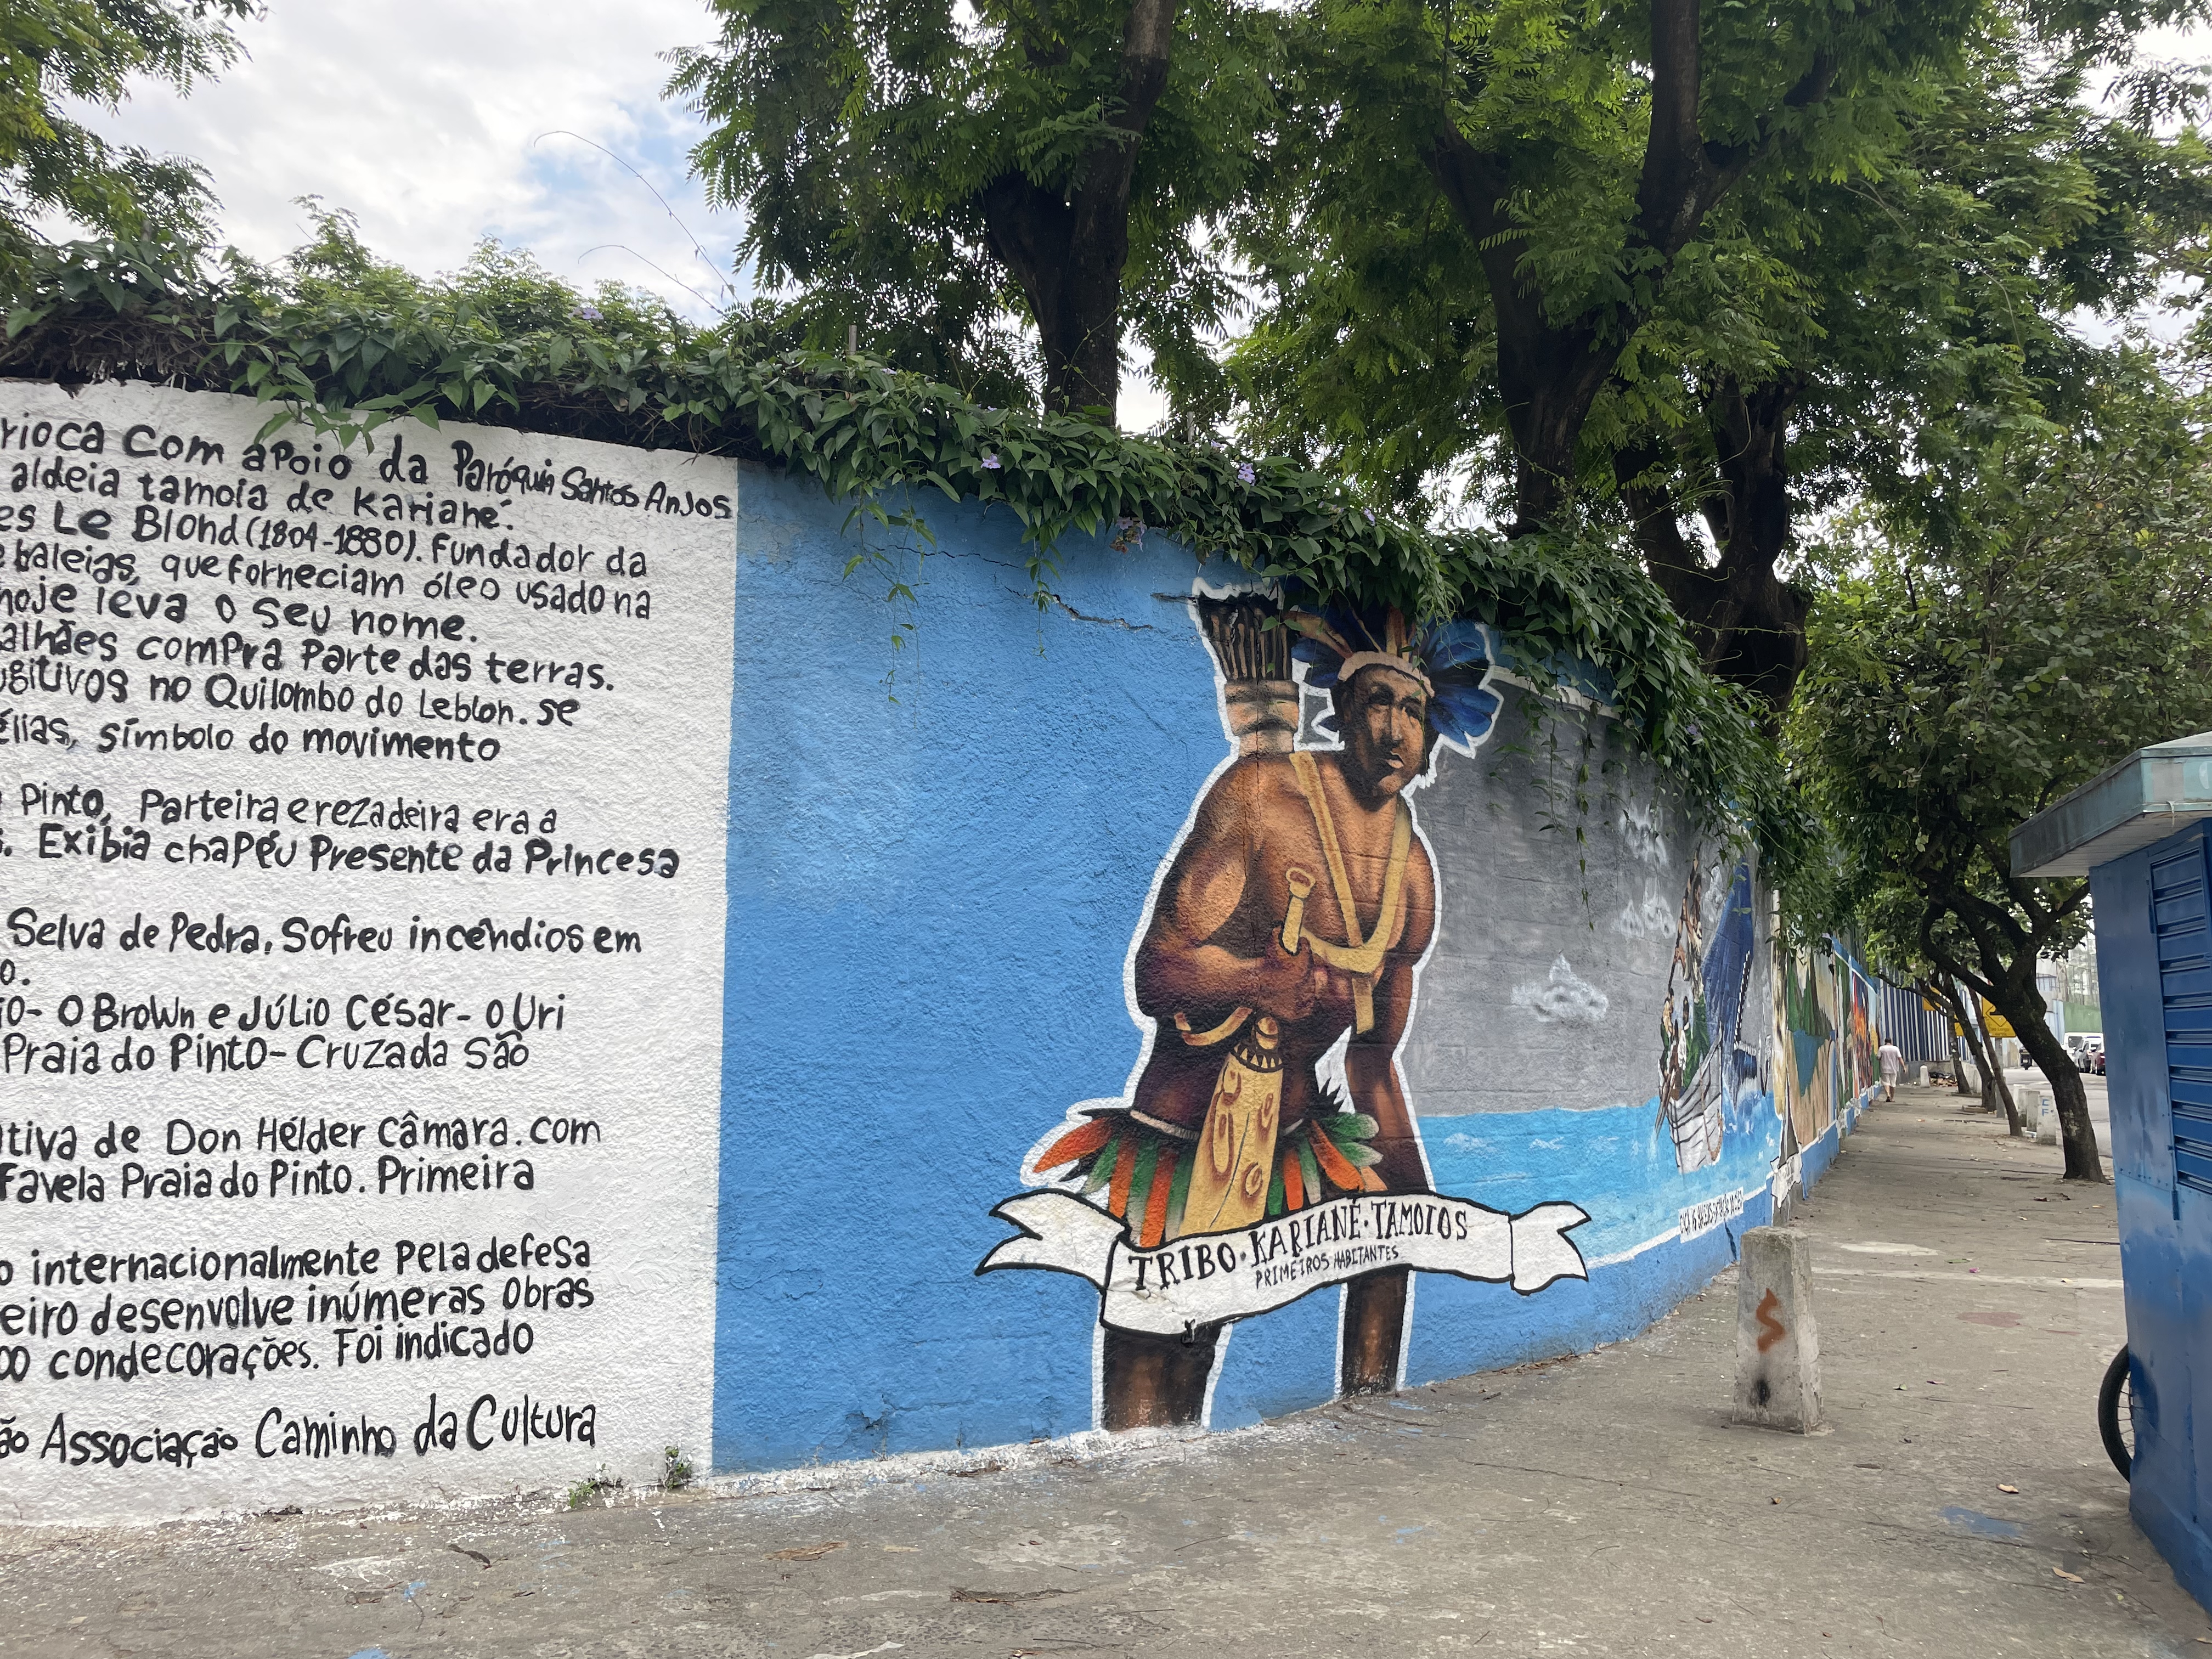 rioca com apoio da Paróquia Santos Anjos
aldeia tamoia de Karianê.
es Le Blond (1804-1880). Fundador da
baleias, que forneciam óleo usado na
hoje leva o seu nome.
alhães compra parte das terras.
ugitivos no Quilombo do Leblon. se
élias, símbolo do movimento
Pinto, Parteira e rezadeira era a
s. Exibia chapéu Presente da Princesa
Selva de Pedra, Sofreu incêndios em
o.
io- O Brown e Júlio César- o Uri
Praia do Pinto- Cruzada São
ativa de Don Hélder Câmara. com
Favela Praia do Pinto. Primeira
o internacionalmente pela defesa
eiro desenvolve inúmeras obras
00 condecorações. Foi indicado
ão Associação Caminho da Cultura
TRIBO · KARIANÉ · TAMOIOS
PRIMEIROS HABITANTES
S